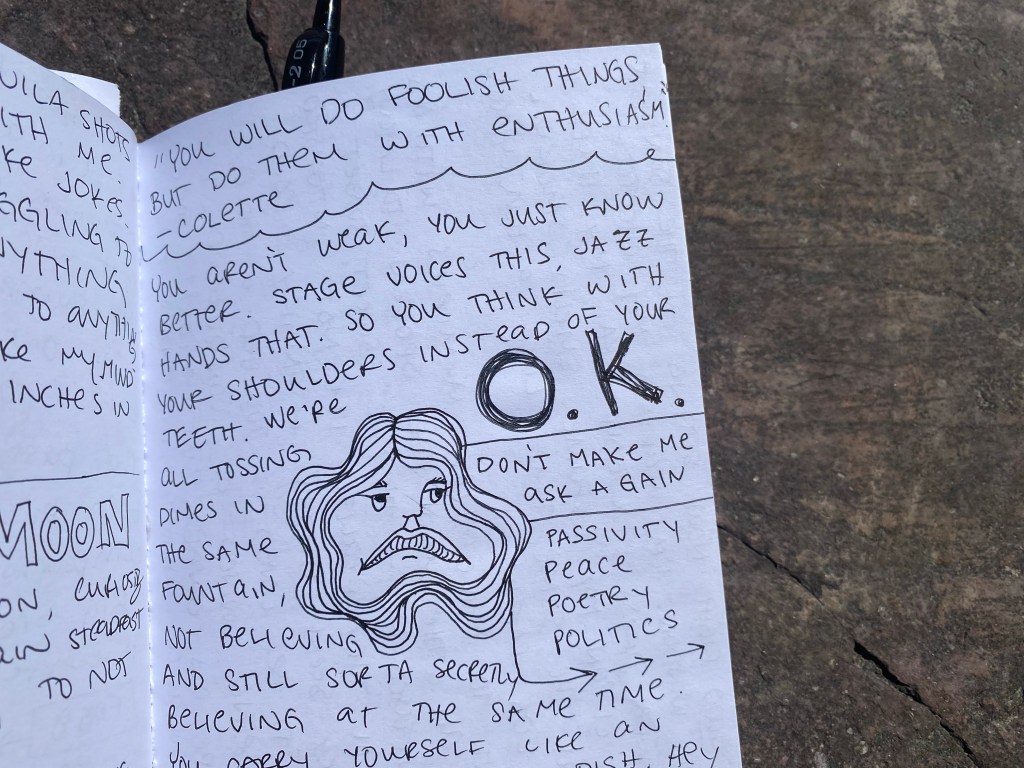 205
SHOTS
ME.
JOKES,
TO
TO
MY MIND
INCHES IN
MOON
STEADFAST
TO NOT
"YOU WILL DO FOOLISH THINGS,
BUT DO THEM WITH ENTHUSIASM."
- COLETTE
YOU AREN'T WEAK, YOU JUST KNOW
BETTER. STAGE VOICES THIS, JAZZ
HANDS THAT. SO YOU THINK WITH
YOUR SHOULDERS INSTEAD OF YOUR
TEETH. WE'RE
ALL TOSSING
DIMES IN
THE SAME
FOUNTAIN,
NOT BELIEVING
AND STILL SORTA SECRETLY
BELIEVING AT THE SAME TIME.
YOU CARRY YOURSELF LIKE AN
HEY
O.K.
DON'T MAKE ME
ASK AGAIN
PASSIVITY
PEACE
POETRY
POLITICS